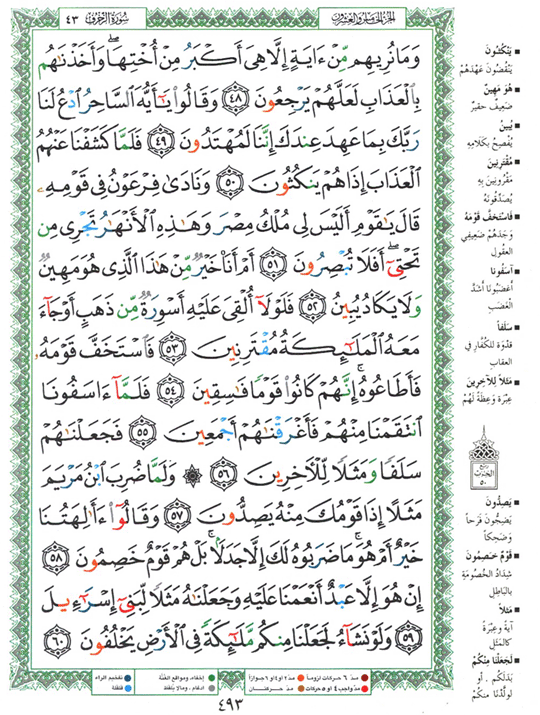 سُورَةُ الزُّخْرُفِ ٤٣
الجزء الخامس والعشرون
وَمَا نُرِيهِم مِّنْ ءَايَةٍ إِلَّا هِىَ أَكْبَرُ مِنْ أُخْتِهَا ۖ وَأَخَذْنَٰهُم
بِٱلْعَذَابِ لَعَلَّهُمْ يَرْجِعُونَ ٤٨ وَقَالُوا۟ يَٰٓأَيُّهَ ٱلسَّاحِرُ ٱدْعُ لَنَا
رَبَّكَ بِمَا عَهِدَ عِندَكَ إِنَّنَا لَمُهْتَدُونَ ٤٩ فَلَمَّا كَشَفْنَا عَنْهُمُ
ٱلْعَذَابَ إِذَا هُمْ يَنكُثُونَ ٥٠ وَنَادَىٰ فِرْعَوْنُ فِى قَوْمِهِۦ
قَالَ يَٰقَوْمِ أَلَيْسَ لِى مُلْكُ مِصْرَ وَهَٰذِهِ ٱلْأَنْهَٰرُ تَجْرِى مِن
تَحْتِىٓ ۖ أَفَلَا تُبْصِرُونَ ٥١ أَمْ أَنَا۠ خَيْرٌ مِّنْ هَٰذَا ٱلَّذِى هُوَ مَهِينٌ
وَلَا يَكَادُ يُبِينُ ٥٢ فَلَوْلَآ أُلْقِىَ عَلَيْهِ أَسْوِرَةٌ مِّن ذَهَبٍ أَوْ جَآءَ
مَعَهُ ٱلْمَلَٰٓئِكَةُ مُقْتَرِنِينَ ٥٣ فَٱسْتَخَفَّ قَوْمَهُۥ
فَأَطَاعُوهُ ۚ إِنَّهُمْ كَانُوا۟ قَوْمًا فَٰسِقِينَ ٥٤ فَلَمَّآ ءَاسَفُونَا
ٱنتَقَمْنَا مِنْهُمْ فَأَغْرَقْنَٰهُمْ أَجْمَعِينَ ٥٥ فَجَعَلْنَٰهُمْ
سَلَفًا وَمَثَلًا لِّلْءَاخِرِينَ ٥٦ ۞ وَلَمَّا ضُرِبَ ٱبْنُ مَرْيَمَ
مَثَلًا إِذَا قَوْمُكَ مِنْهُ يَصِدُّونَ ٥٧ وَقَالُوٓا۟ ءَأَٰلِهَتُنَا
خَيْرٌ أَمْ هُوَ ۚ مَا ضَرَبُوهُ لَكَ إِلَّا جَدَلًۢا ۚ بَلْ هُمْ قَوْمٌ خَصِمُونَ ٥٨
إِنْ هُوَ إِلَّا عَبْدٌ أَنْعَمْنَا عَلَيْهِ وَجَعَلْنَٰهُ مَثَلًا لِّبَنِىٓ إِسْرَٰٓءِيلَ
٥٩ وَلَوْ نَشَآءُ لَجَعَلْنَا مِنكُم مَّلَٰٓئِكَةً فِى ٱلْأَرْضِ يَخْلُفُونَ ٦٠
يَنكُثُونَ
يَنْقُضُونَ عَهْدَهُمْ
هُوَ مَهِينٌ
ضَعِيفٌ حَقِيرٌ
يُبِينُ
يُفْصِحُ بِكَلَامِهِ
مُقْتَرِنِينَ
مَقْرُونِينَ بِهِ
يُصَدِّقُونَهُ
فَاسْتَخَفَّ قَوْمَهُ
وَجَدَهُمْ ضَعِيفِي
العقول
آسَفُونَا
أَغْضَبُونَا أَشَدَّ
الغَضَبِ
سَلَفًا
قُدْوَةً لِلْكُفَّارِ فِي
العِقابِ
مَثَلًا لِلْآخِرِينَ
عِبْرَةً وَعِظَةً لَهُمْ
ربع
الحزب
٥٠
يَصِدُّونَ
يَضِجُّونَ فَرَحًا
وَضَحِكًا
قَوْمٌ خَصِمُونَ
شِدَادُ الخُصُومَةِ
بِالبَاطِلِ
مَثَلًا
آيَةً وَعِبْرَةً
كالمَثَلِ
لَجَعَلْنَا مِنْكُمْ
بَدَلَكُمْ . أَوْ
لَوَلَّدْنَا مِنْكُمْ
مدّ ٦ حركات لزوماً مدّ ٢ أو ٤ أو ٦ جوازاً إخفاء، ومواقع الغُنَّة تفخيم الراء
مدّ واجب ٤ أو ٥ حركات مدّ حركتان ادغام، وما لا يُلفَظ قلقلة
٤٩٣